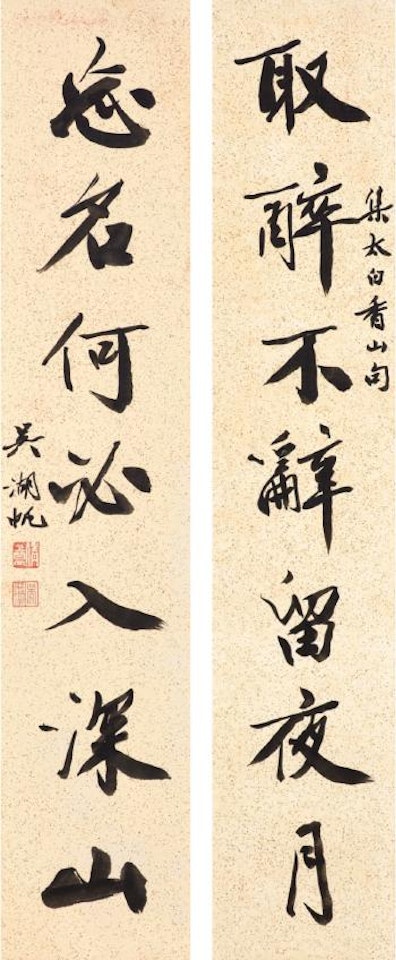 取醉不辭留夜月
集太白香山句
忘名何必入深山
吳湖帆